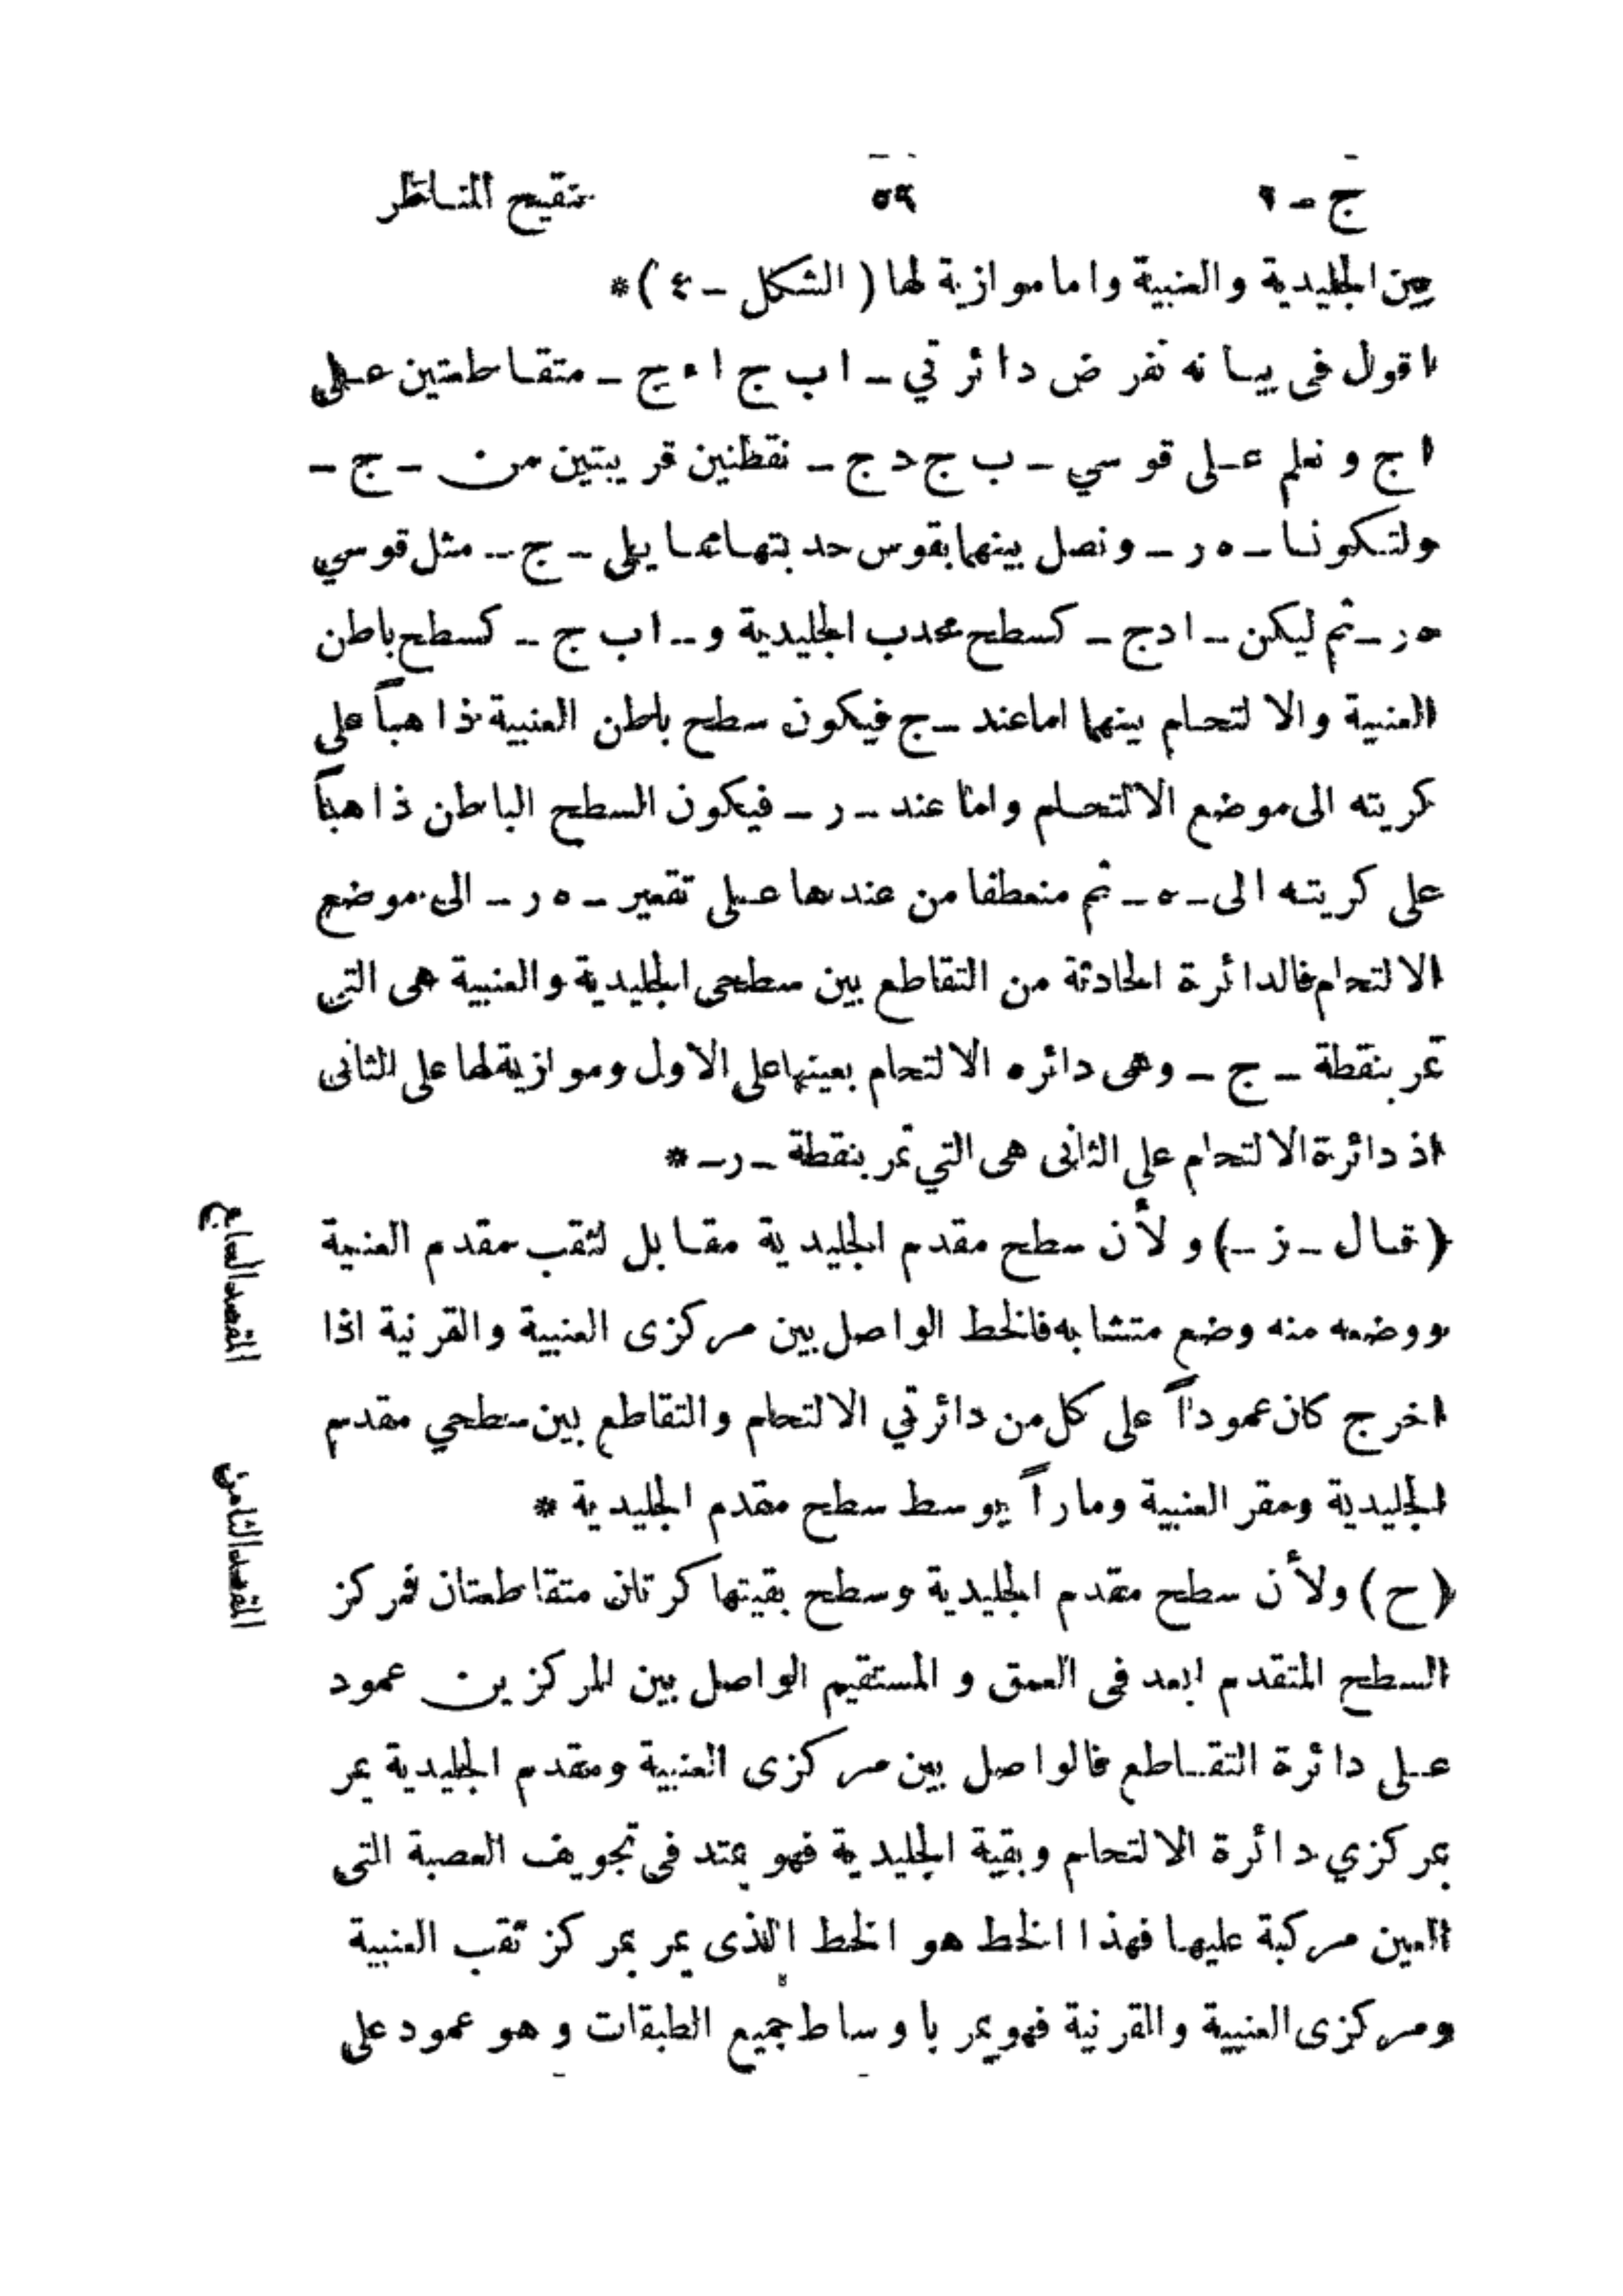 ج - ١ ٥٩ تنقيح المناظر
بين الجليدية والعنبية واما موازية لها ( الشكل - ٤ ) *
اقول فى بيانه نفرض دائرتي - ا ب ج ا ء ج - متقاطعتين على
ا ج ونعلم على قوسي - ب ج د ج - نقطتين قريبتين من - ج -
ولتكونا - ه ر - ونصل بينهما بقوس حدبتها مما يلى - ج - مثل قوسي
ه ر - ثم ليكن - ا د ج - كسطح محدب الجليدية و - ا ب ج - كسطح باطن
العنبية والالتحام بينهما اما عند - ج فيكون سطح باطن العنبية ذاهباً على
كريته الى موضع الالتحام واما عند - ر - فيكون السطح الباطن ذاهباً
على كريته الى - ه - ثم منعطفا من عندها على تقعير - ه ر - الى موضع
الالتحام فالدائرة الحادثة من التقاطع بين سطحى الجليدية والعنبية هى التي
تمر بنقطة - ج - وهى دائره الالتحام بعينها على الاول وموازية لها على الثانى
اذ دائرة الالتحام على الثانى هى التي تمر بنقطة - ر - *
( قال - ز - ) ولأن سطح مقدم الجليدية مقابل لثقب مقدم العنبية
ووضعه منه وضع متشابه فالخط الواصل بين مركزى العنبية والقرنية اذا
اخرج كان عموداً على كل من دائرتي الالتحام والتقاطع بين سطحي مقدم
الجليدية ومقر العنبية وماراً بوسط سطح مقدم الجليدية *
( ح ) ولأن سطح مقدم الجليدية وسطح بقيتها كرتان متقاطعتان فمركز
السطح المتقدم ابعد فى العمق و المستقيم الواصل بين المركزين عمود
على دائرة التقاطع فالواصل بين مركزى العنبية ومقدم الجليدية يمر
بمركزي دائرة الالتحام وبقية الجليدية فهو يمتد فى تجويف العصبة التى
العين مركبة عليها فهذا الخط هو الخط الذى يمر بمركز ثقب العنبية
ومركزى العنبية والقرنية فهو يمر باوساط جميع الطبقات وهو عمود على
المقصد السابع
المقصد الثامن